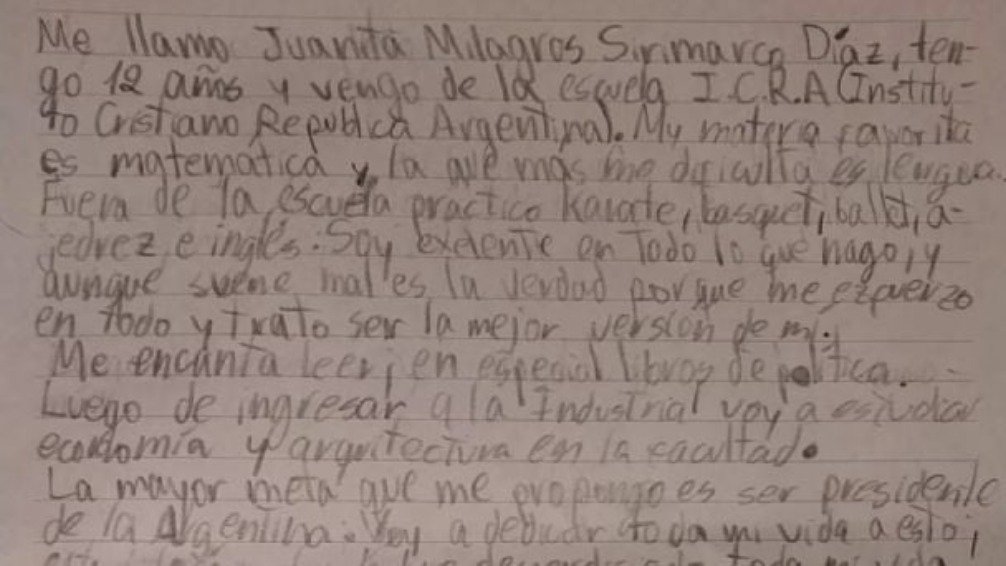 Me llamo Juanita Milagros Sirimarco Díaz, ten-
go 12 años y vengo de la escuela I.C.R.A (Institu-
to Cristiano Republica Argentina). My materia favorita
es matematica y la que mas me dificulta es lengua.
Fuera de la escuela practico karate, basquet, ballet, a-
jedrez e inglés. Soy exelente en todo lo que hago, y
aunque suene mal es la verdad porque me ezfuerzo
en todo y trato ser la mejor version de mi.
Me encanta leer, en especial libros de politica.
Luego de ingresar a la Industrial voy a estudiar
economía y arquitectura en la facultad.
La mayor meta que me propongo es ser presidente
de la Argentina. Voy a dedicar toda mi vida a esto,
toda mi vida